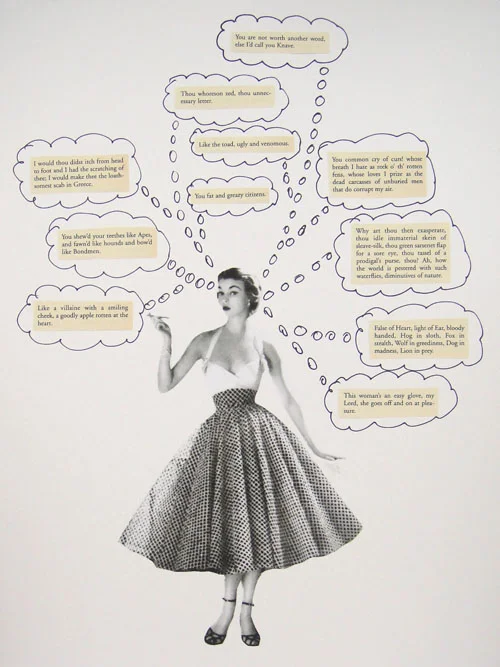 You are not worth another word,
else I'd call you Knave.
Thou whoreson zed, thou unnec-
essary letter.
Like the toad, ugly and venomous.
I would thou didst itch from head
to foot and I had the scratching of
thee; I would make thee the loath-
somest scab in Greece.
You common cry of curs! whose
breath I hate as reek o' th' rotten
fens, whose loves I prize as the
dead carcasses of unburied men
that do corrupt my air.
You fat and greazy citizens.
You shew'd your teethes like Apes,
and fawn'd like hounds and bow'd
like Bondmen.
Why art thou then exasperate,
thou idle immaterial skein of
sleave-silk, thou green sarsenet flap
for a sore eye, thou tassel of a
prodigal's purse, thou? Ah, how
the world is pestered with such
waterflies, diminutives of nature.
Like a villaine with a smiling
cheek, a goodly apple rotten at the
heart.
False of Heart, light of Ear, bloody
handed, Hog in sloth, Fox in
stealth, Wolf in greediness, Dog in
madness, Lion in prey.
This woman's an easy glove, my
Lord, she goes off and on at plea-
sure.